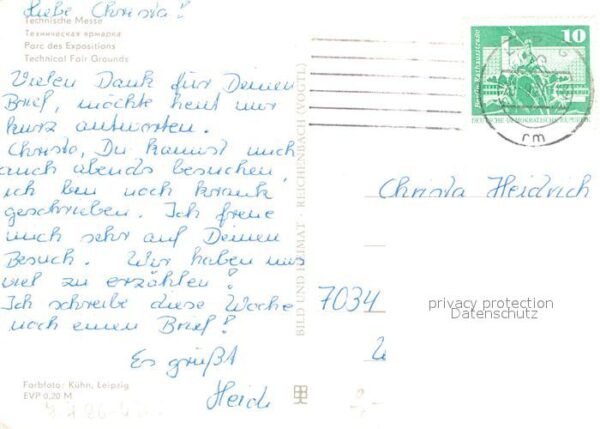 Liebe Christa!
Technische Messe
Техническая ярмарка
Parc des Expositions
Technical Fair Grounds
Vielen Dank für Deinen
Brief, möchte heut nur
kurz antworten.
Christa, Du kannst mich
auch abends besuchen,
ich bin noch krank
geschrieben. Ich freue
mich sehr auf Deinen
Besuch. Wir haben uns
viel zu erzählen!
Ich schreibe diese Woche
noch einen Brief!
Es grüßt
Heidi
Farbfoto: Kühn, Leipzig
EVP 0,20 M
BILD UND HEIMAT · REICHENBACH (VOGTL)
10
DEUTSCHE DEMOKRATISCHE REPUBLIK
rm
Christa Heidrich
7034
privacy protection
Datenschutz